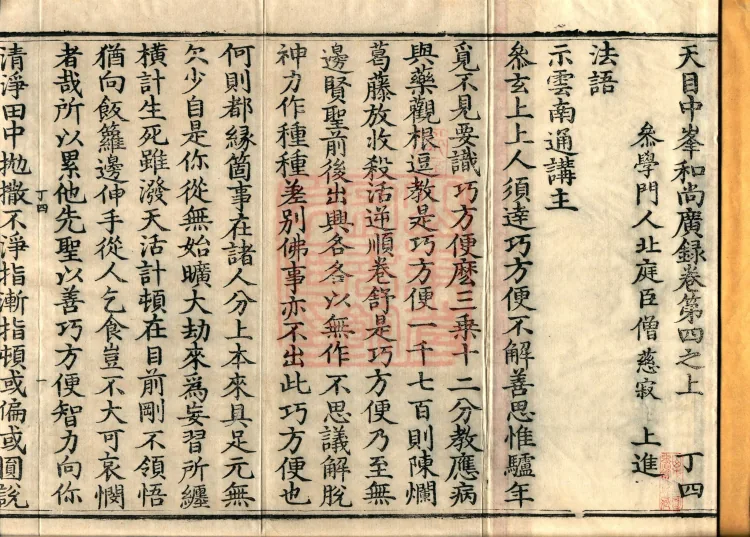 天目中峯和尚廣録卷第四之上 丁四
叅學門人北庭臣僧慈寂 上進
法語
示雲南通講主
叅玄上上人須達巧方便不解善思惟驢年
覓不見要識巧方便麽三乗十二分教應病
與藥觀根逗教是巧方便一千七百則陳爛
葛藤放收殺活逆順卷舒是巧方便乃至無
邊賢聖前後出興各各以無作不思議解脫
神力作種種差别佛事亦不出此巧方便也
何則都緣箇事在諸人分上本來具足元無
欠少自是你從無始曠大劫來爲妄習所纏
橫計生死雖潑天活計頓在目前剛不領悟
猶向飯籮邊伸手從人乞食豈不大可哀憫
者哉所以累他先聖以善巧方便智力向你
丁四
一
清淨田中抛撒不淨指漸指頓或偏或圓說